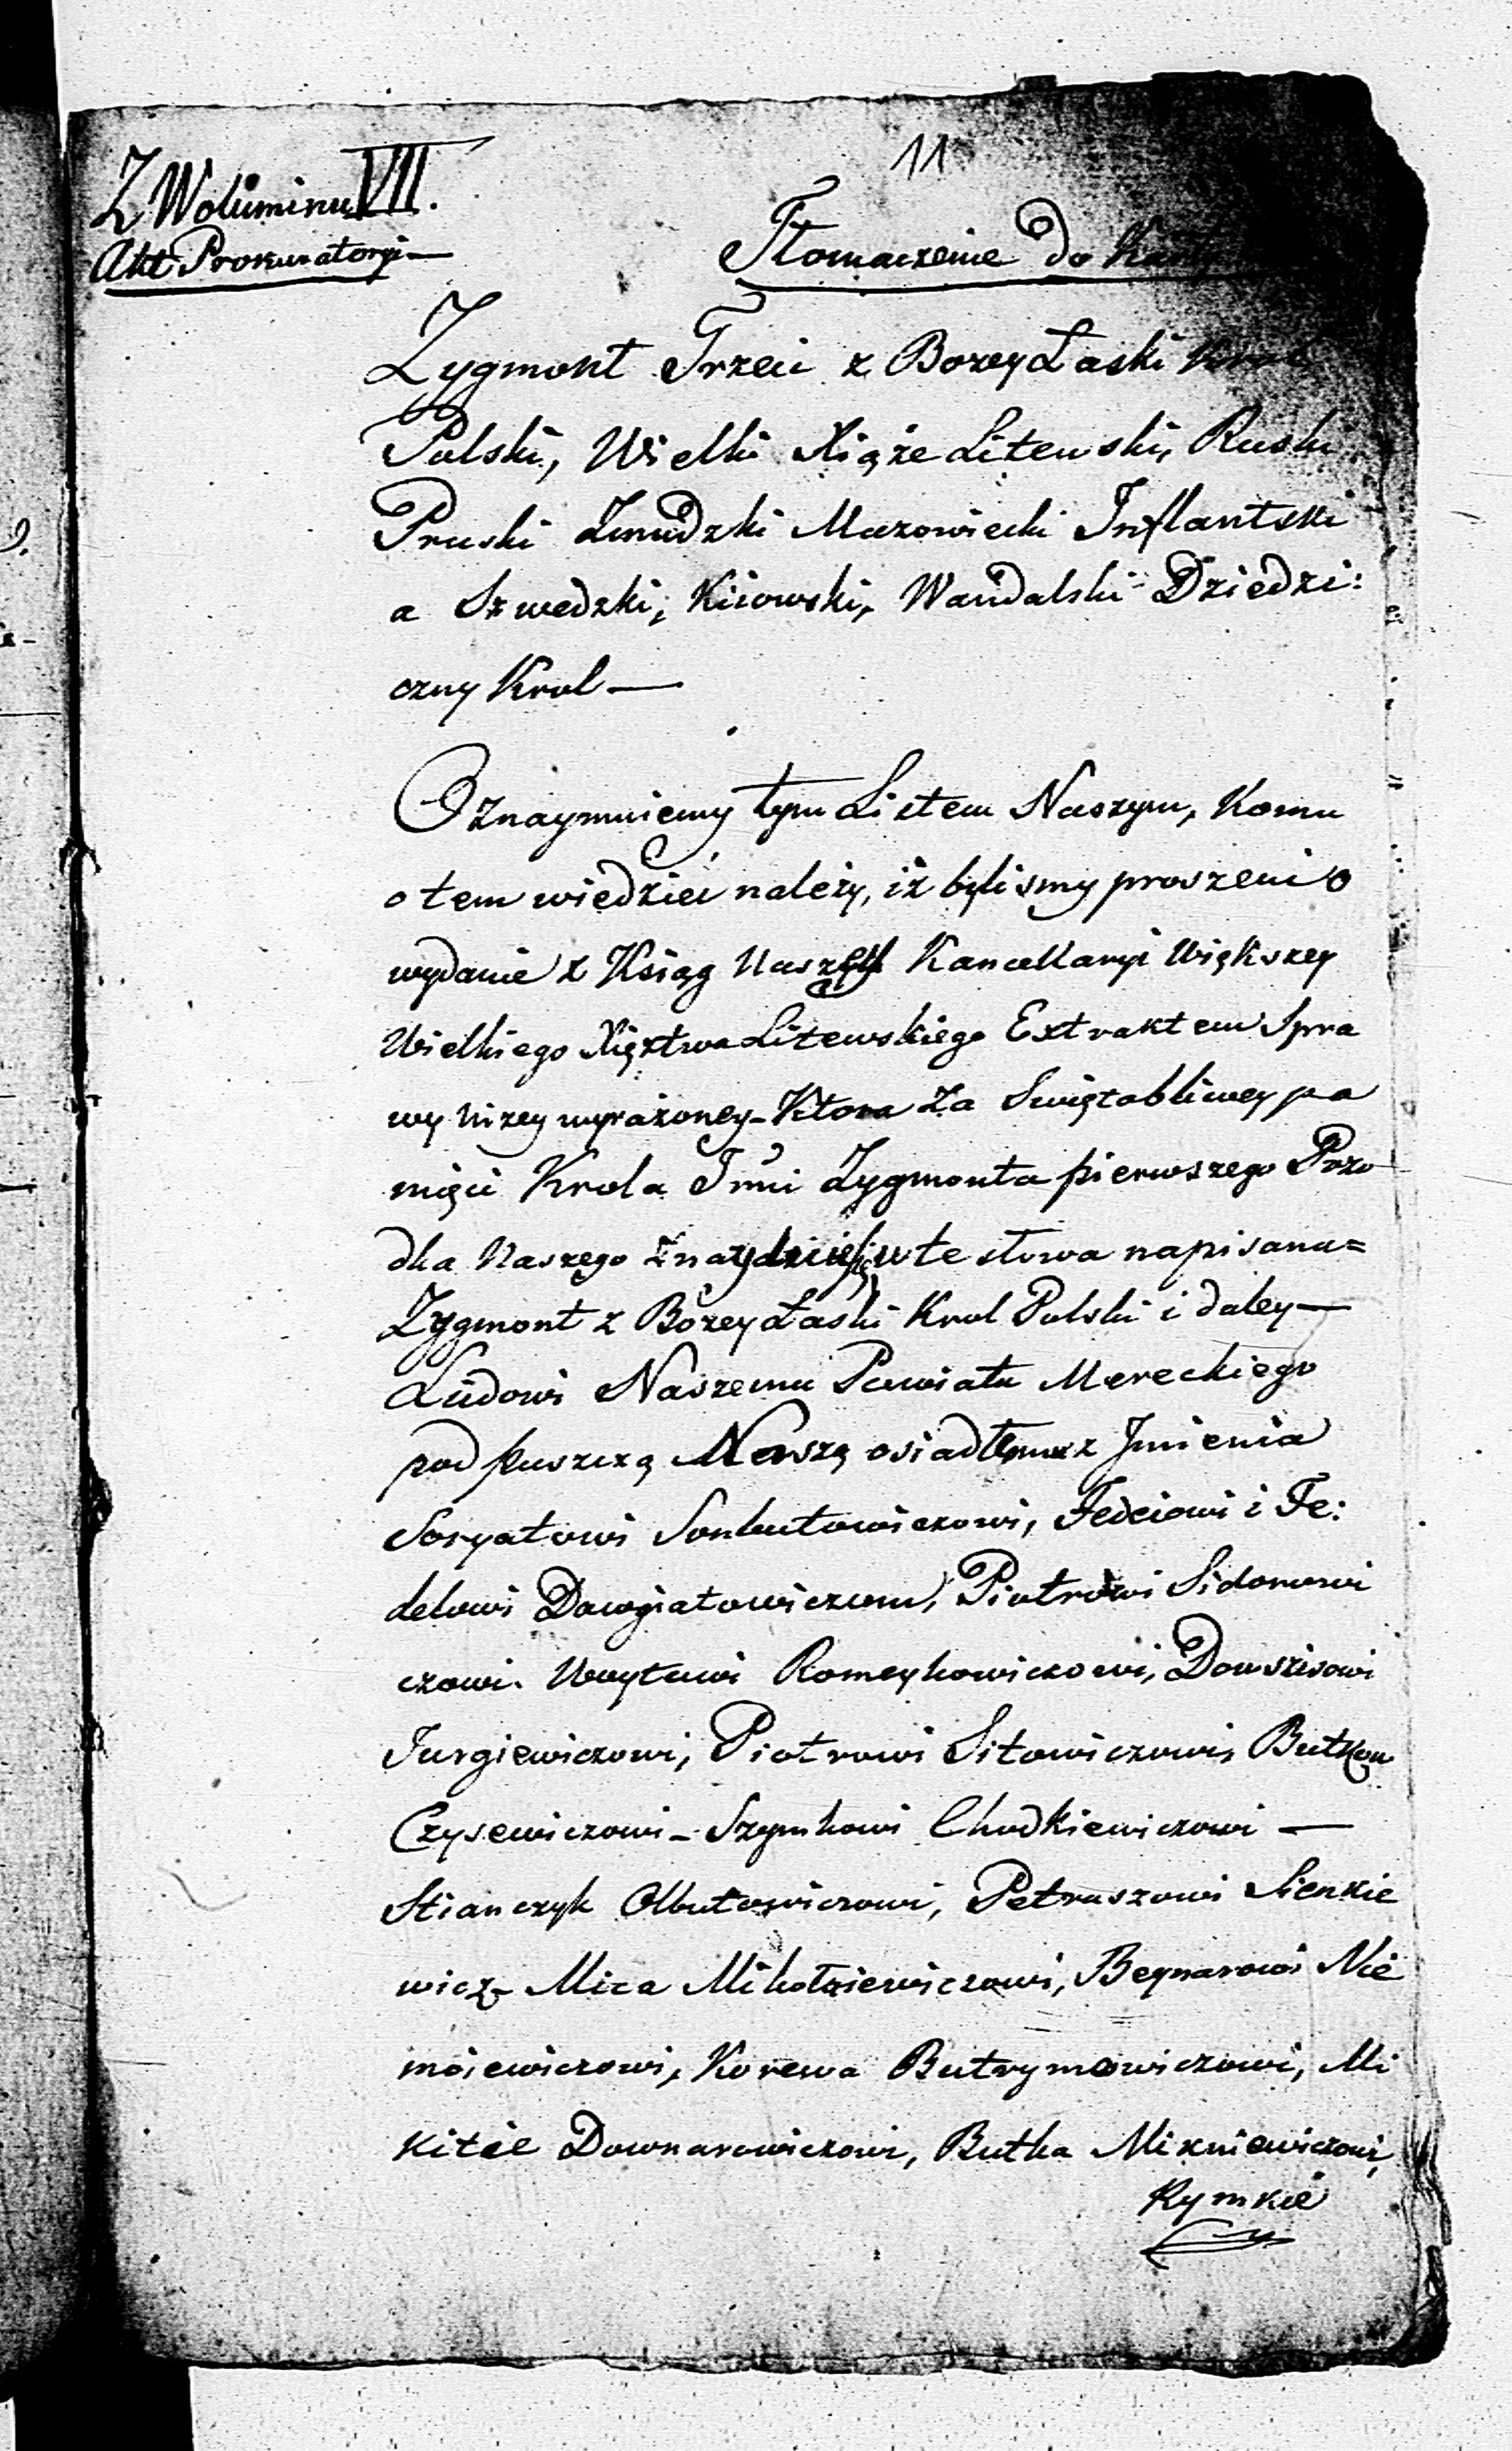 11
Z Woluminu VII.
Akt Prokuratoryi
Tłomaczenie do
Zygmont Trzeci z Bozey Łaski Krol
Polski, Wielki Xiąże Litewski, Ruski
Pruski Zmudzki Mazowiecki Inflantski
a Szwedzki, Wandalski Dziedzi:
czny Krol —
Oznaymuiemy tym Listem Naszym, Komu
o tem wiedzieć należy, iż bylismy proszeni o
wydanie z Ksiąg Naszey Kancellaryi Większey
Wielkiego Xięztwa Litewskiego Extraktem Spra
wy Nizey wyrażoney - Ktora za Swiętobliwey pa
mięci Krola Jmci Zygmonta pierwszego Przo
dka Naszego w te słowa napisana =
Zygmont z Bożey Łaski Krol Polski i daley —
Ludowi Naszemu Powiatu Mereckiego
pod puszczą Naszą z Jmienia
Soryatowi Fedciowi i Fe:
delowi Dowgiatowiczom, Piotrowi Sidorowi
czowi. Woytowi Romeykowiczowi, Dowszisowi
Jurgiewiczowi, Piotrowi Sitowiczowi, Butkow
Czysewiczowi - Szymkowi Chodkiewiczowi —
Stianczyk Olbutowiczowi, Petraszowi Sienkie
wicz - Mica Beynarowi Nie
moiewiczowi, Korewa Butrymowiczowi, Mi
kicie Downarowiczowi, Butka Mixniewiczowi,
Rymkie